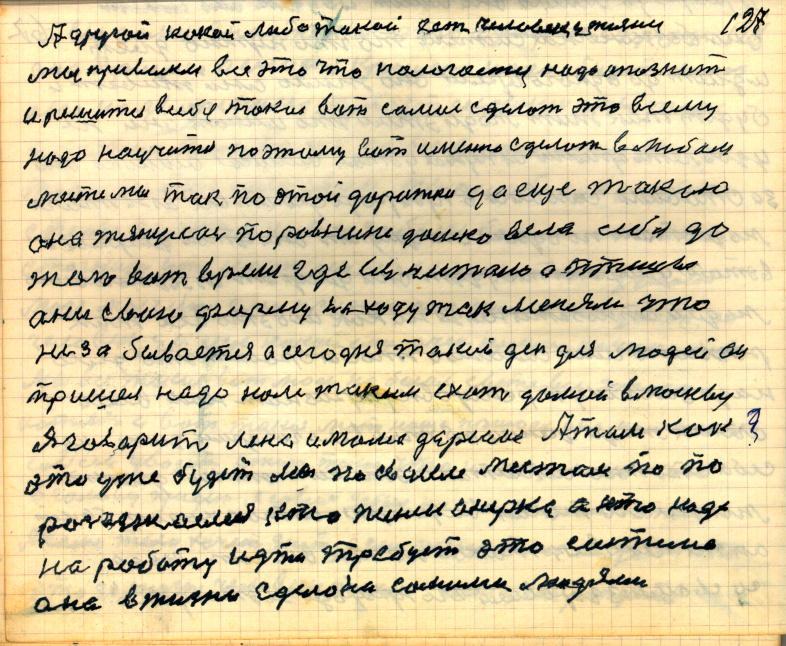 127
А другой какой либо такой хат человек у жизни
мы привыкли все это что пологается надо опознат
и решити в себя такие вот самие сделат это всему
надо научити поэтому вот именно сделат в любом
мести мы так по этой даражки да еще такою
она тянулас по ровнини далко вела себя до
того вот время где читано о птицы
ани свою форму на ходу так меняли что
низабывается а сегодня такой ден для людей
пришел надо нам таким ехат домой в москву
Я говарит лена и мама держис А там как
это уже будет мы по своем местам по по
кто пинсионерка а кто надо
на работу идти требует это система
она в жизни сделона самими людями